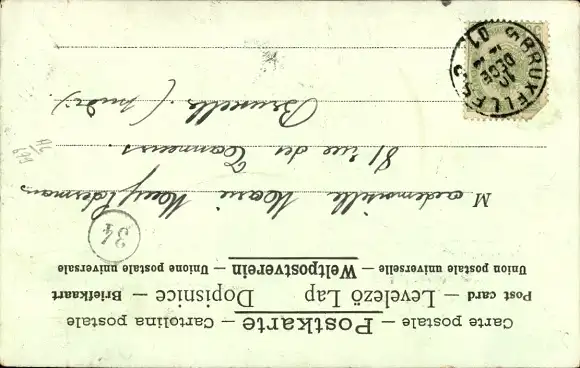 Carte postale — Postkarte — Cartolina postale
Post card — Levelező Lap Dopisnice — Briefkaart
Union postale universelle — Weltpostverein — Unione postale universale
34
Mademoiselle Marie
81 rue des Tanneurs.
Bruxelles. (midi.)
BRUXELLES 5
10
DECE
01